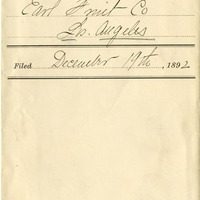 Earl Fruit Co
Los. Angeles
Filed December 19th, 1892